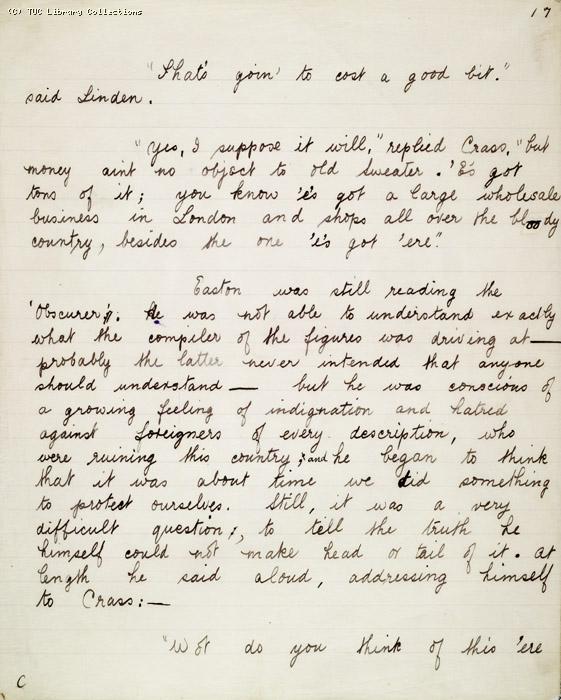 (C) TUC Library Collections
17
"That's goin' to cost a good bit."
said Linden.
"Yes, I suppose it will," replied Crass, "but
money aint no object to old Sweater. 'E's got
tons of it; you know 'e's got a large wholesale
business in London and shops all over the bloody
country, besides the one 'e's got 'ere".
Easton was still reading the
'Obscurer'. He was not able to understand exactly
what the compiler of the figures was driving at—
probably the latter never intended that anyone
should understand — but he was conscious of
a growing feeling of indignation and hatred
against foreigners of every description, who
were ruining this country, and he began to think
that it was about time we did something
to protect ourselves. Still, it was a very
difficult question, to tell the truth he
himself could not make head or tail of it. At
length he said aloud, addressing himself
to Crass:—
"Wot do you think of this 'ere
C